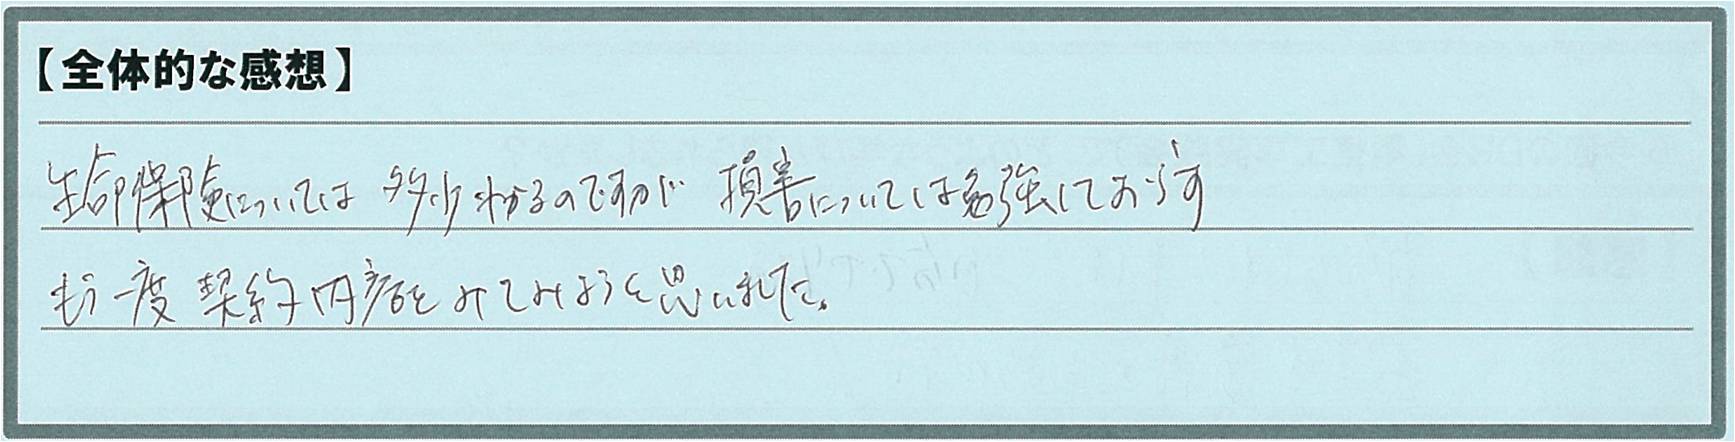 【全体的な感想】
生命保険については多少わかるのですが損害については勉強しておらず
もう一度契約内容をみてみようと思いました。